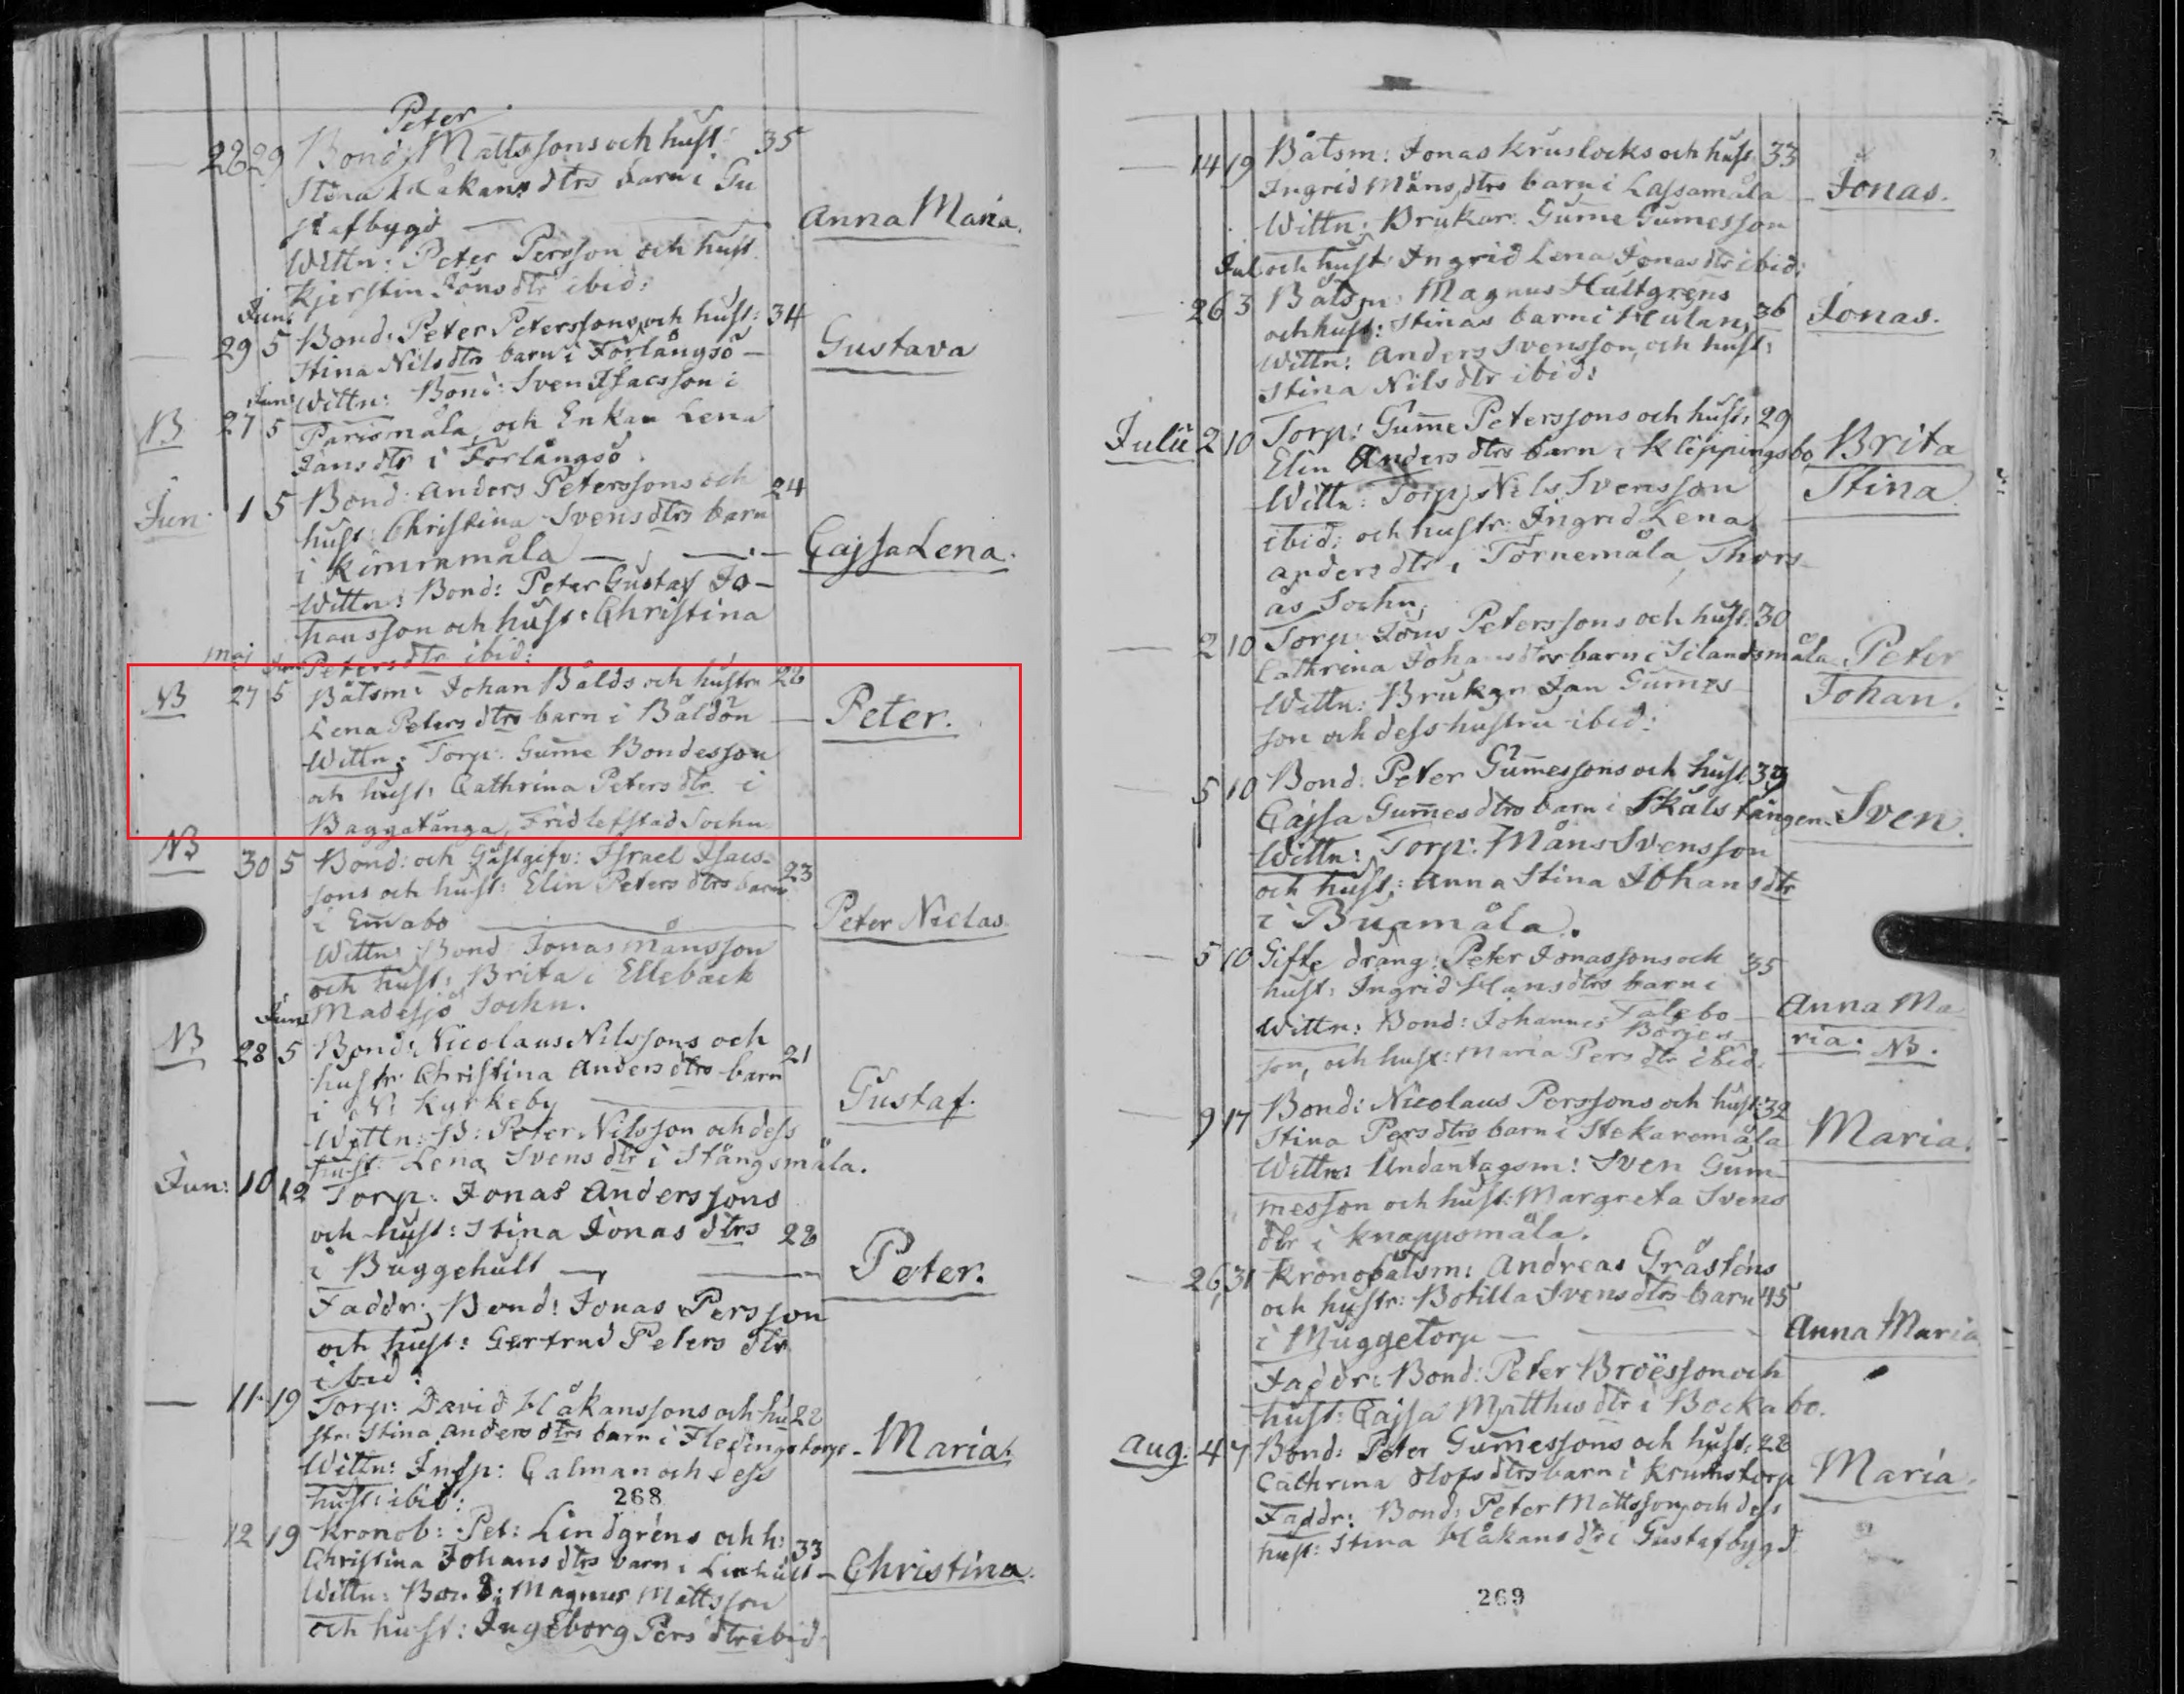 Peter
28 29 Bond: Mattssons och hust: 35
Stina Håkans dtrs barn i Gu
stafbygd — Anna Maria.
Wittn: Peter Persson och hust.
Kjerstin Jöns dtr ibid:
Jun:
29 5 Bond: Peter Peterssons och hust: 34
Stina Nils dtrs barn i Förlångsö — Gustava
Wittn: Bond: Sven Isacsson i
Jun:
NB 27 5 Parismåla, och Enkan Lena
Jans dtr i Förlångsö.
Jun: 1 5 Bond: Anders Peterssons och 24
hust: Christina Svens dtrs barn
i Kimramåla — Cajsa Lena.
Wittn: Bond: Peter Gustaf Jo-
hansson och hust: Christina
Peters dtr ibid:
maj Jun
NB 27 5 Båtsm: Johan Bålds och hustru 28
Lena Peters dtrs barn i Båldön — Peter.
Wittn: Torp: Gum̄e Bondesson
och hust: Cathrina Peters dtr. i
Baggatånga, Fridlefstad Sochn
NB 30 5 Bond: och Gästgifv: Israel Isacs- 23
sons och hust: Elin Peters dtrs barn
i Em̄abo — Peter Niclas
Wittn: Bond Jonas Månsson
och hust: Brita i Elleback
Madesjö Sochn.
Jun:
NB 28 5 Bond: Nicolaus Nilssons och 21
hustr: Christina Anders dtrs barn
i N: Kyrkeby — Gustaf.
Wittn: B: Peter Nilsson och dess
hust: Lena Svens dtr i Stångsmåla.
Jun: 10 12 Torp: Jonas Anderssons
och hust: Stina Jonas dtrs 28
i Buggehult — Peter.
Faddr: Bond: Jonas Persson
och hust: Gertrud Peters dtr
ibid:
— 11 19 Torp: David Håkanssons och hu 28
str: Stina Anders dtrs barn i Fledingstorp - Maria.
Wittn: Insp: Calman och dess
hust: ibid:
268
12 19 Kronob: Pet: Lindgréns och h: 33
Christina Johans dtrs barn i Linhult - Christina.
Wittn: Bond: Magnus Mattsson
och hust: Ingeborg Pers dtr ibid
— 14 19 Båtsm: Jonas Kruslocks och hust. 33
Ingrid Måns dtrs barn i Lassamåla - Jonas.
Wittn: Brukar: Gum̄e Gum̄esson
Jul och hust: Ingrid Lena Jonas dtr ibid:
26 3 Båtsm: Magnus Hultgrens 36
och hust: Stinas barn i Hulan, Jonas.
Wittn: Anders Svensson, och hust:
Stina Nils dtr ibid:
Julii 2 10 Torp: Gum̄e Peterssons och hust: 29
Elin Anders dtrs barn i Kleppingsbo Brita
Wittn: Torp: Nils Svensson Stina
ibid: och hustr: Ingrid Lena
Anders dtr i Törnemåla, Thors-
ås Sochn,
— 2 10 Torp: Jöns Peterssons och hust: 30
Cathrina Johans dtrs barn i Silandsmåla Peter
Wittn: Brukar Jan Gum̄es- Johan.
son och dess hustru ibid:
5 10 Bond: Peter Gum̄essons och hust: 39
Cajsa Gum̄es dtrs barn i Skälstången. Sven.
Wittn: Torp: Måns Svensson
och hust: Anna Stina Johans dtr
i Buamåla.
5 10 Gifte dräng: Peter Jonassons och 35
hust: Ingrid Hans dtrs barn i
Falebo — Anna Ma
Wittn: Bond: Johannes Börjes ria. NB.
son, och hust: Maria Pers dtr ibid.
— 9 17 Bond: Nicolaus Perssons och hust: 32
Stina Pers dtrs barn i Stekaremåla Maria.
Wittn: Undantagsm: Sven Gum̄-
messon och hust: Margreta Svens
dtr i Knappsmåla.
— 26, 31 Kronobåtsm: Andreas Gråsténs
och hustr: Botilla Svens dtrs barn 45
i Muggetorp — Anna Maria
Faddr: Bond: Peter Broësson och
hust: Cajsa Matthis dtr i Bockabo.
Aug: 4 7 Bond: Peter Gum̄essons och hust: 28
Cathrina Olofs dtrs barn i Krumstorp Maria.
Faddr: Bond: Peter Mattsson och dess
hust: Stina Håkans dtr i Gustafbygd
269